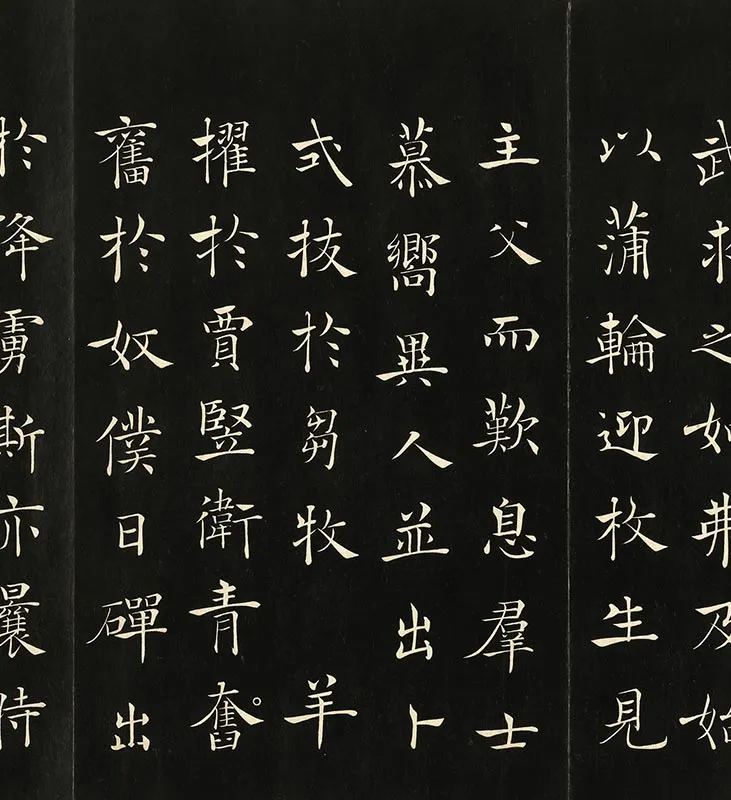 武求之如弗及始
以蒲輪迎枚生見
主父而歎息羣士
慕嚮異人並出卜
式拔於芻牧 羊
擢於賈竪衛青奮
奮於奴僕日磾出
於降虜斯亦曩時